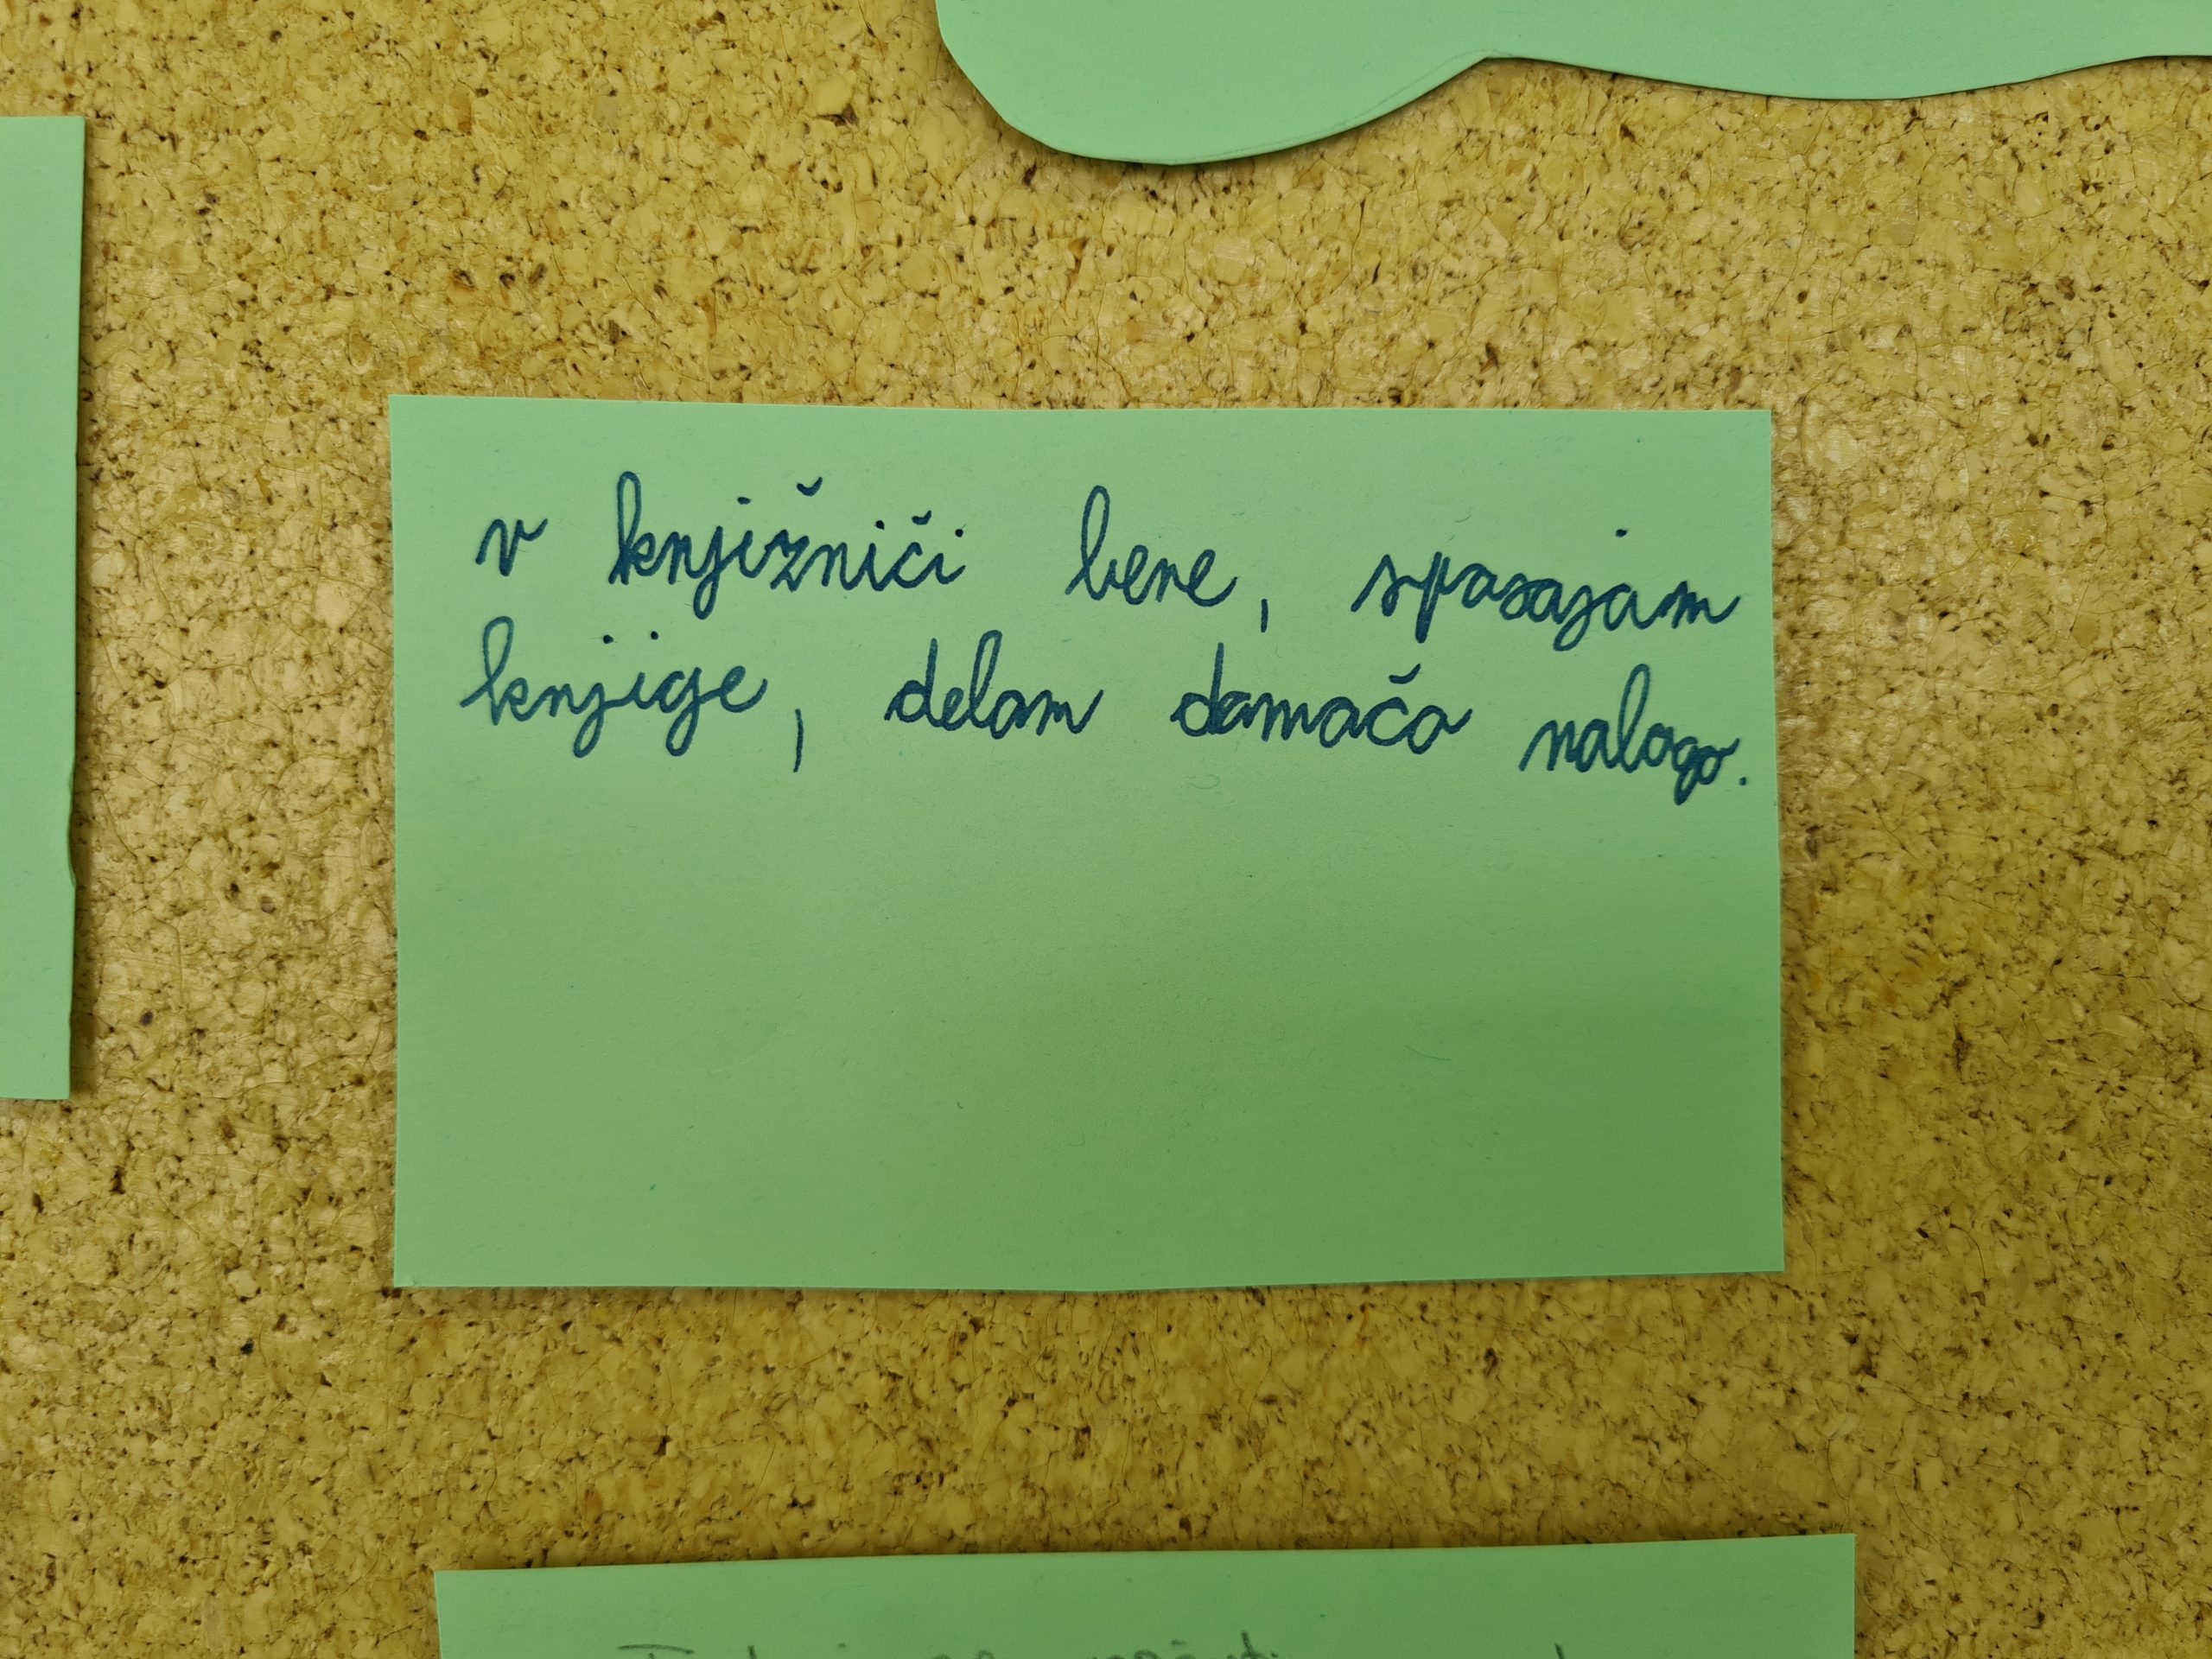 v knjižniči bere, sposojam
knjige, delam domačo nalogo.